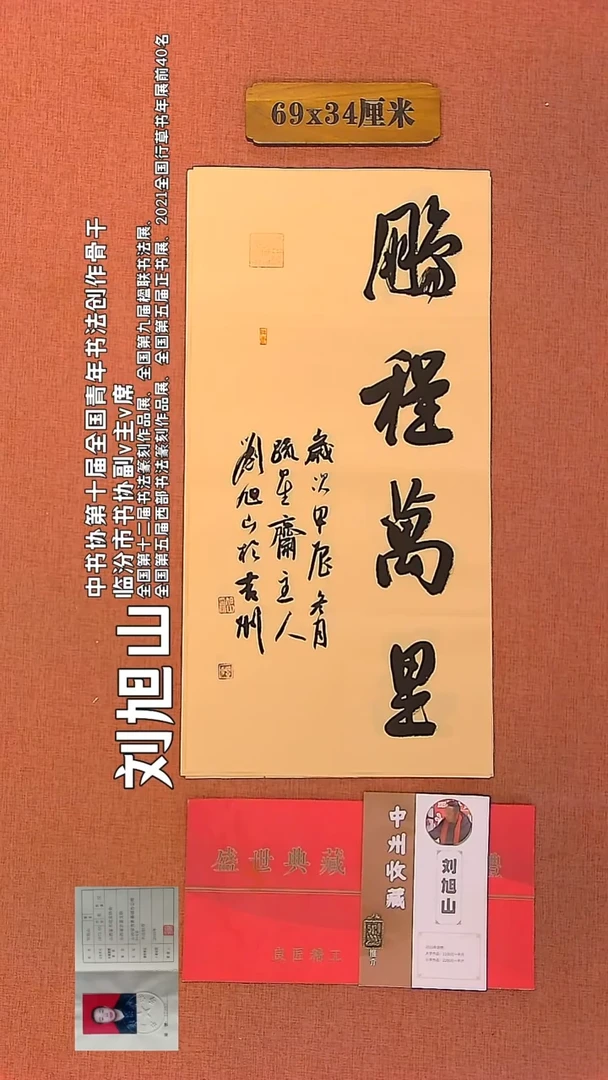 69x34厘米
鵬程萬里
歲次甲辰冬月
疏星齋主人
劉旭山於吉州
刘旭山
中书协第十届全国青年书法创作骨干
临汾市书协副v主v席
全国第十二届书法篆刻作品展、全国第九届楹联书法展、
全国第五届西部书法篆刻作品展、全国第五届正书展、2021全国行草书年展前40名
盛世典藏
中州收藏
刘旭山